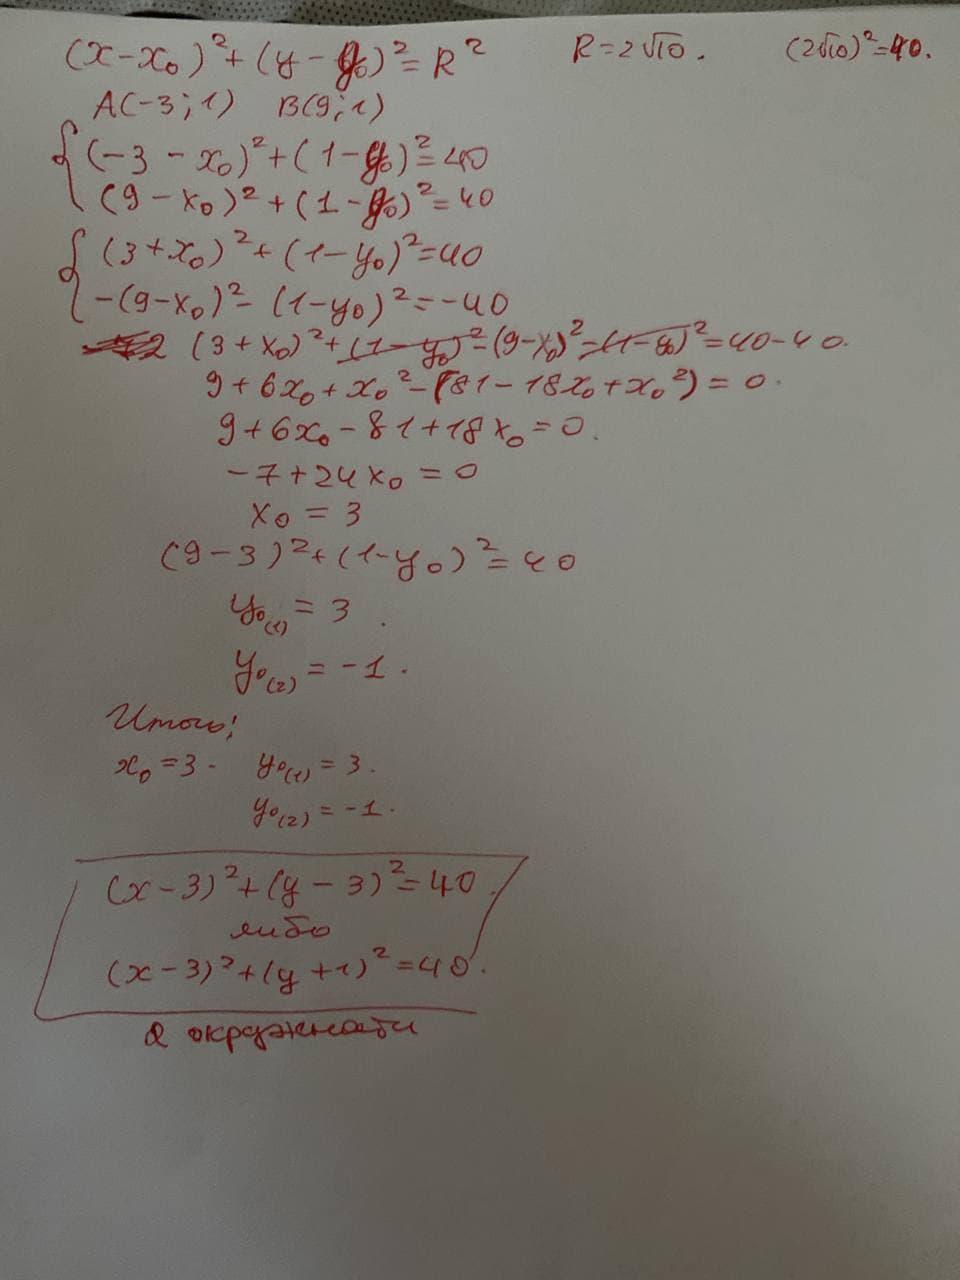 (x-x₀)²+(y-y₀)²=R² R=2√10. (2√10)²=40.
A(-3;1) B(9;1)
{(-3-x₀)²+(1-y₀)²=40
(9-x₀)²+(1-y₀)²=40
{(3+x₀)²+(1-y₀)²=40
-(9-x₀)²-(1-y₀)²=-40
(3+x₀)²+(1-y₀)²-(9-x₀)²-(1-y₀)²=40-40.
9+6x₀+x₀²-(81-18x₀+x₀²)=0.
9+6x₀-81+18x₀=0.
-7+24x₀=0
x₀=3
(9-3)²+(1-y₀)²=40
y₀₍₁₎=3.
y₀₍₂₎=-1.
Итого:
x₀=3. y₀₍₁₎=3.
y₀₍₂₎=-1.
(x-3)²+(y-3)²=40.
либо
(x-3)²+(y+1)²=40.
2 окружности